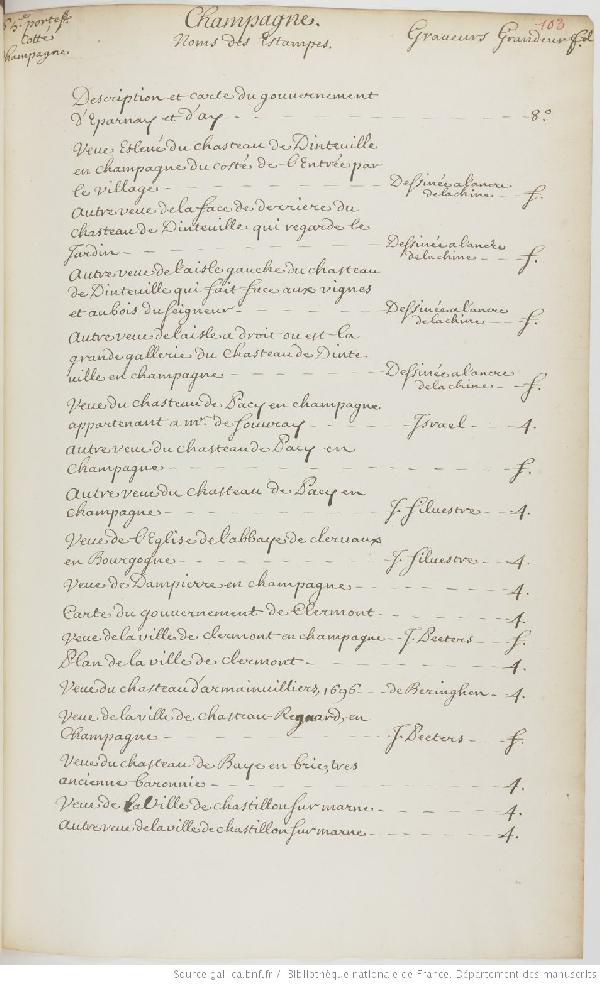 portef.
Cotté
Champagne
Champagne.
103
Noms des Estampes. Graveurs Grandeur
Description et carte du gouvernement
d'Eparnay et d'ay - 8.°
Veue Eslevé du chasteau de Dinteuille
en champagne du costé de l'Entrée par
le village - Dessinée a l'ancre de la chine - f.
Autre veue de la face de derriere du
chasteau de Dinteuille qui regarde le
Jardin - Dessinée a l'ancre de la chine - f.
Autre veue de l'aisle gauche du chasteau
de Dinteuille qui fait face aux vignes
et au bois du seigneur - Dessinée a l'ancre de la chine - f.
Autre veue de l'aisle a droit ou est la
grande gallerie du Chasteau de Dinte
uille en champagne - Dessinée a l'ancre de la chine - f.
Veue du chasteau de Pacy en champagne
appartenant a mr. de - Israel - 4.
Autre veue du chasteau de Pacy en
Champagne - f.
Autre veue du chasteau de Pacy en
champagne - J. Silvestre - 4.
Veue de l'Eglise de l'abbaye de clervaux
en Bourgogne - J. Silvestre - 4.
Veue de Dampierre en champagne - 4.
Carte du gouvernement de Clermont - 4.
Veue de la ville de clermont en champagne - J. Peeters - f.
Plan de la ville de clermont - 4.
Veue du chasteau d'armainvilliers, 1696 - de Beringhen - 4.
Veue de la ville de chasteau Regnard, en
Champagne - J. Peeters - f.
Veue du chasteau de Baye en brie, tres
ancienne baronnie - 4.
Veue de la Ville de chastillon sur marne - 4.
Autre veue de la ville de chastillon sur marne - 4.
Source gallica.bnf.fr / Bibliothèque nationale de France. Département des manuscrits